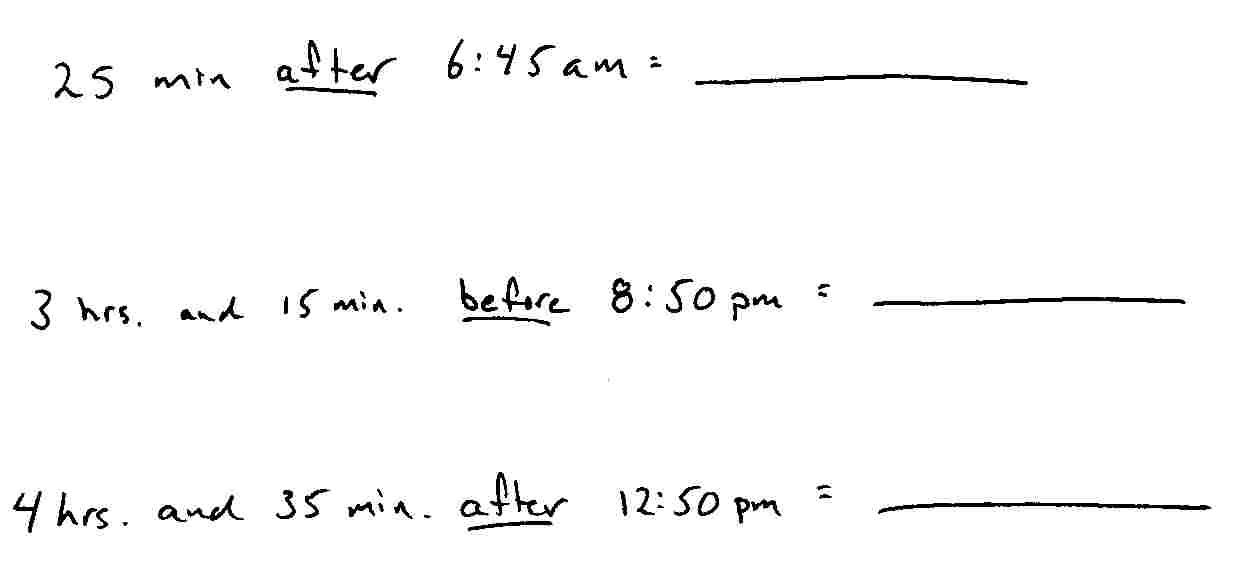 25 min after 6:45 am = ________
3 hrs. and 15 min. before 8:50 pm = ________
4 hrs. and 35 min. after 12:50 pm = ________